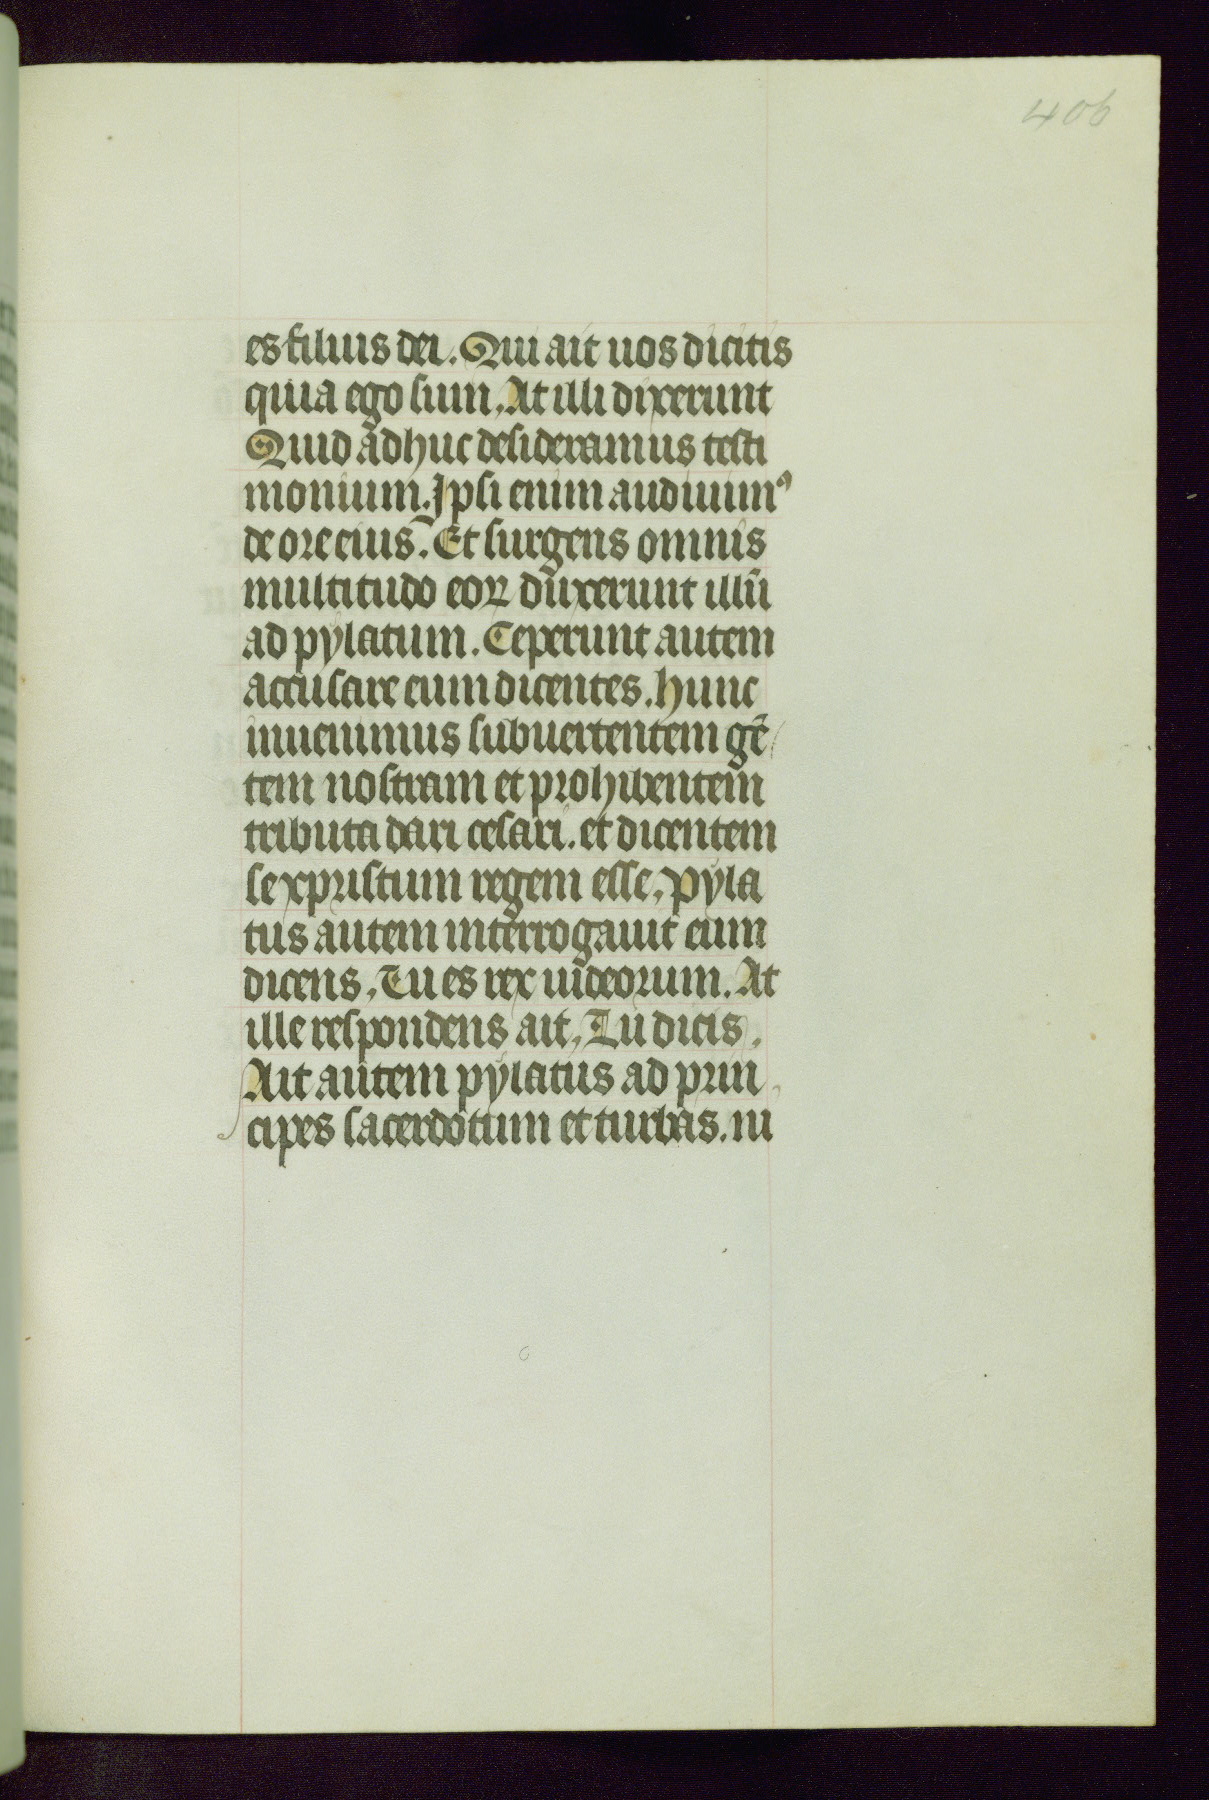 406
es filius dei. Qui ait uos dicitis
quia ego sum, At illi dixerunt
Quid adhuc desideramus testi
monium. Ipsi enim audiuimꝰ
de ore eius. Et surgens omnis
multitudo eoꝝ duxerunt illū
ad pylatum. Ceperunt autem
accusare eum dicentes. hunc
inuenimus subuertentem gē
tem nostram et prohibentem
tributa dari cesari. et dicentem
se xpristum regem esse, pyla
tus autem interrogauit eum
dicens, Tu es rex iudeorum. At
ille respondens ait, Tu dicis.
Ait autem pylatus ad prin
cipes sacerdotum et turbas. ni